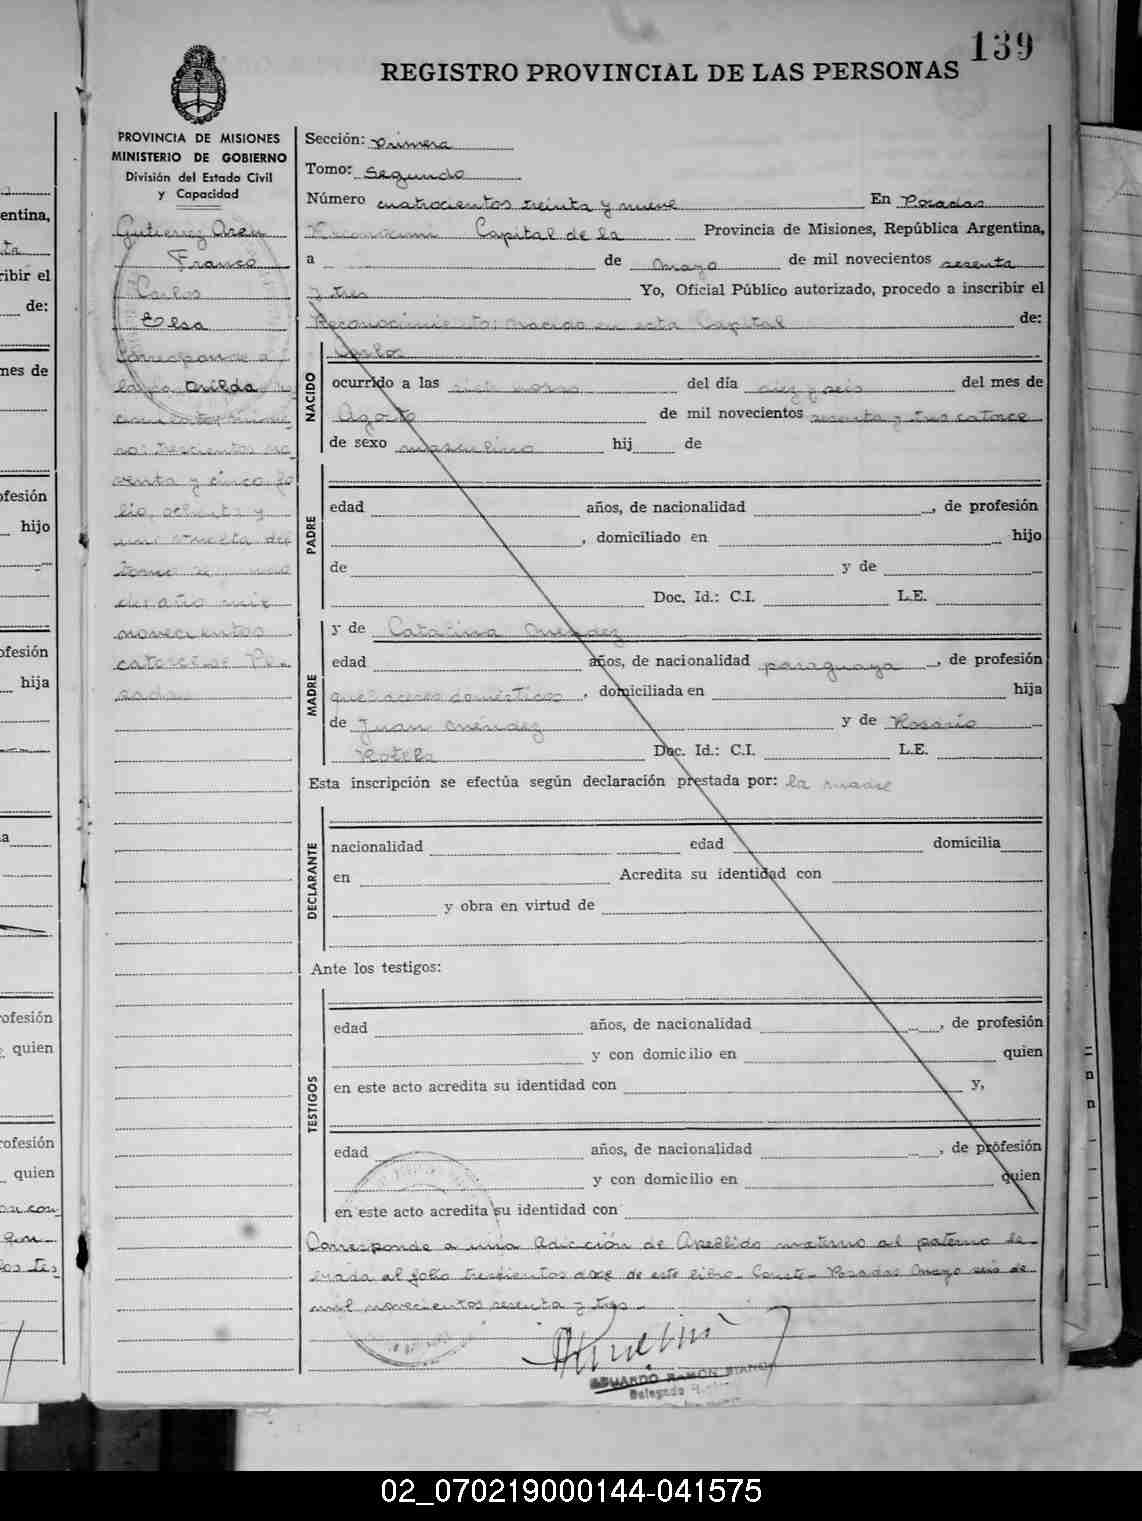 139
REGISTRO PROVINCIAL DE LAS PERSONAS
PROVINCIA DE MISIONES
MINISTERIO DE GOBIERNO
División del Estado Civil
y Capacidad
Gutierrez
Franco
Carlos
Elsa
Corresponde a
cientos
no: trescientos no
venta y cinco fo
lio, ochenta y
vuelta del
tomo
del año mil
novecientos
catorce.
Sección: Primera
Tomo: Segundo
Número cuatrocientos treinta y nueve En Posadas
Capital de la Provincia de Misiones, República Argentina,
a de mayo de mil novecientos sesenta
y tres Yo, Oficial Público autorizado, procedo a inscribir el
Reconocimiento: nacido en esta Capital de:
Carlos
NACIDO
ocurrido a las siete horas del día diez y seis del mes de
Agosto de mil novecientos sesenta y tres catorce
de sexo masculino hij de
PADRE
edad años, de nacionalidad , de profesión
, domiciliado en hijo
de y de
Doc. Id.: C.I. L.E.
y de Catalina Mendez
MADRE
edad años, de nacionalidad paraguaya , de profesión
quehaceres domésticos , domiciliada en hija
de Juan Méndez y de Rosario
Rotela Doc. Id.: C.I. L.E.
Esta inscripción se efectúa según declaración prestada por: la madre
DECLARANTE
nacionalidad edad domicilia
en Acredita su identidad con
y obra en virtud de
Ante los testigos:
TESTIGOS
edad años, de nacionalidad , de profesión
y con domicilio en quien
en este acto acredita su identidad con y,
edad años, de nacionalidad , de profesión
y con domicilio en quien
en este acto acredita su identidad con
Corresponde a una Adicción de Apellido materno al paterno la-
brada al folio trescientos doce de este libro. Conste. Posadas Mayo seis de
mil novecientos sesenta y tres.
EDUARDO RAMON
Delegado
entina,
ribir el
de:
nes de
ofesión
hijo
ofesión
hija
a
rofesión
quien
rofesión
quien
02_070219000144-041575